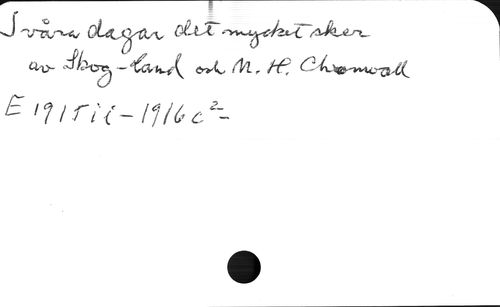 I våra dagar det mycket sker
av Skog-land och M. H. Chromvall
E 1915 i i - 1916 c 2-